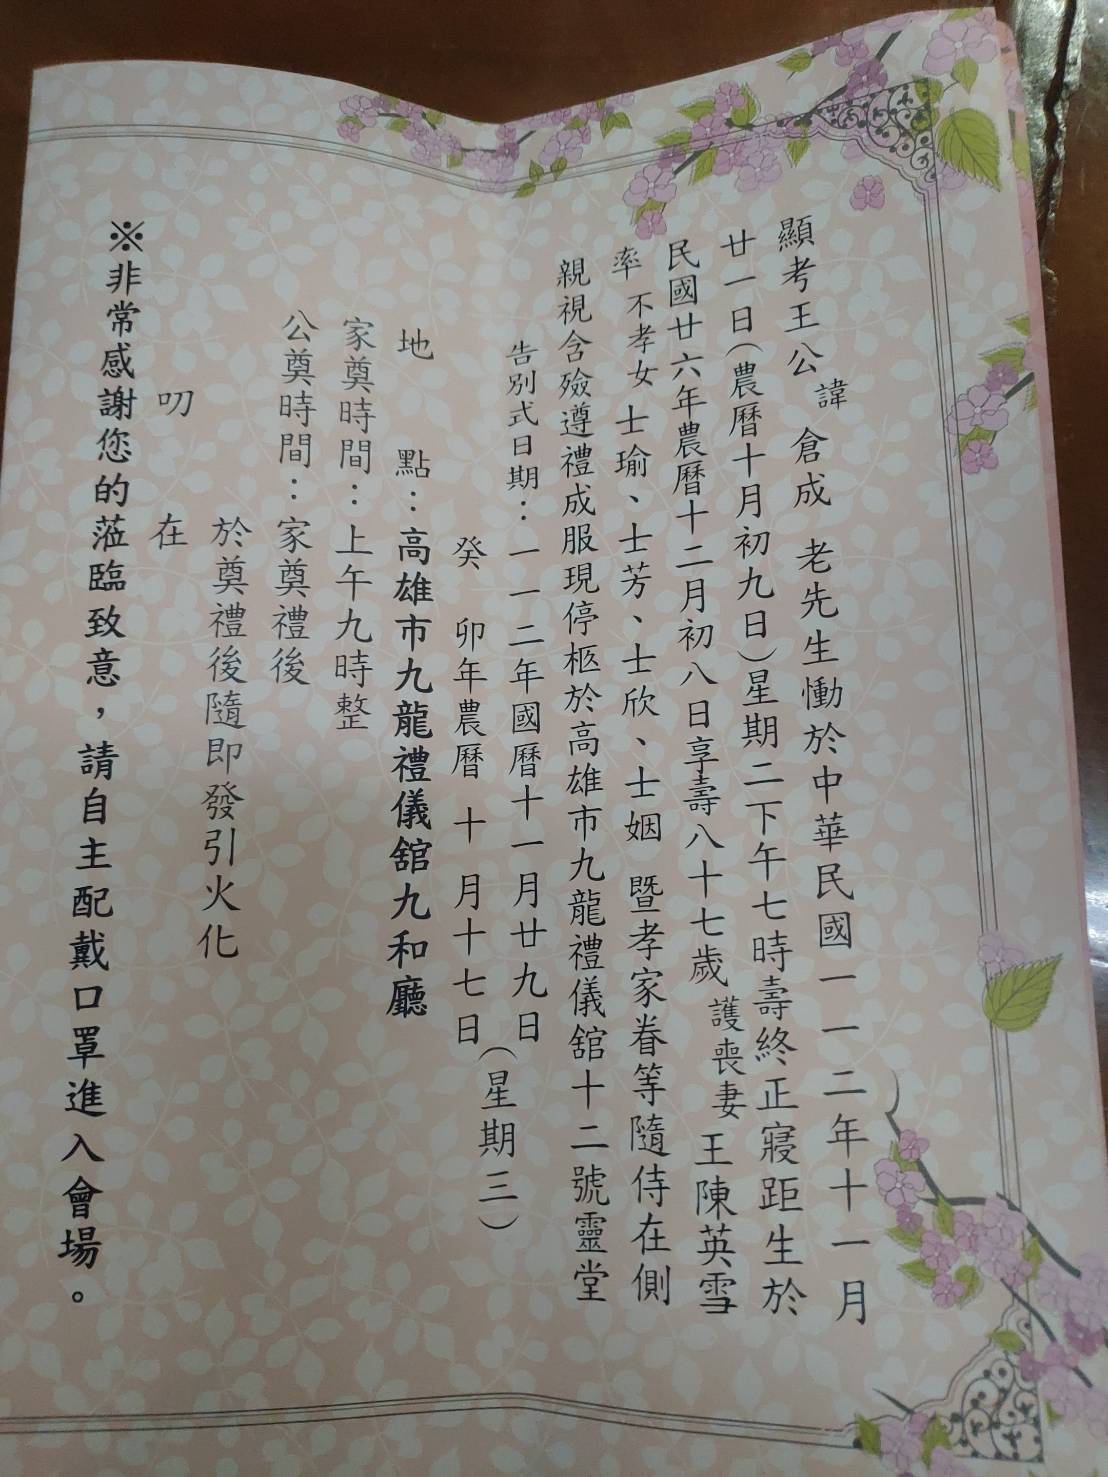 顯考王公諱倉成老先生慟於中華民國一一二年十一月
廿一日(農曆十月初九日)星期二下午七時壽終正寢距生於
民國廿六年農曆十二月初八日享壽八十七歲護喪妻王陳英雪
率不孝女士瑜、士芳、士欣、士姻暨孝家眷等隨侍在側
親視含殮遵禮成服現停柩於高雄市九龍禮儀舘十二號靈堂
告別式日期:一一二年國曆十一月廿九日
癸卯年農曆十月十七日
(星期三)
地點:高雄市九龍禮儀舘九和廳
家奠時間:上午九時整
公奠時間:家奠禮後
於奠禮後隨即發引火化
叨在
※非常感謝您的蒞臨致意,請自主配戴口罩進入會場。